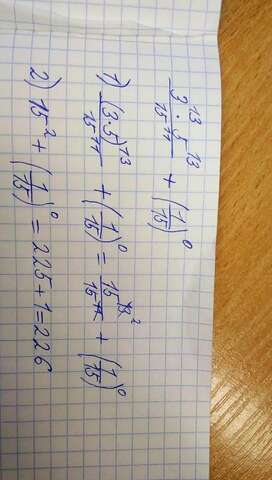 3¹³ · 5¹³ / 15¹¹ + (1/15)⁰
1) (3·5)¹³ / 15¹¹ + (1/15)⁰ = 15¹³ ² / 15¹¹ + (1/15)⁰
2) 15² + (1/15)⁰ = 225 + 1 = 226